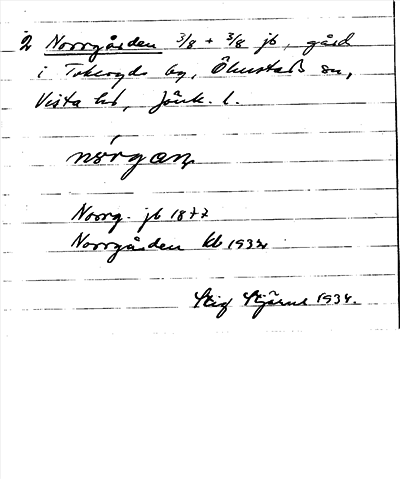 2 Norrgården 3/8 + 3/8 jb, gård
i Tokeryds by, Ölmstads sn,
Vista hd, Jönk. l.
nørgan
Norrg. jb 1877
Norrgården kb 1932
Stig Stjärne 1934.